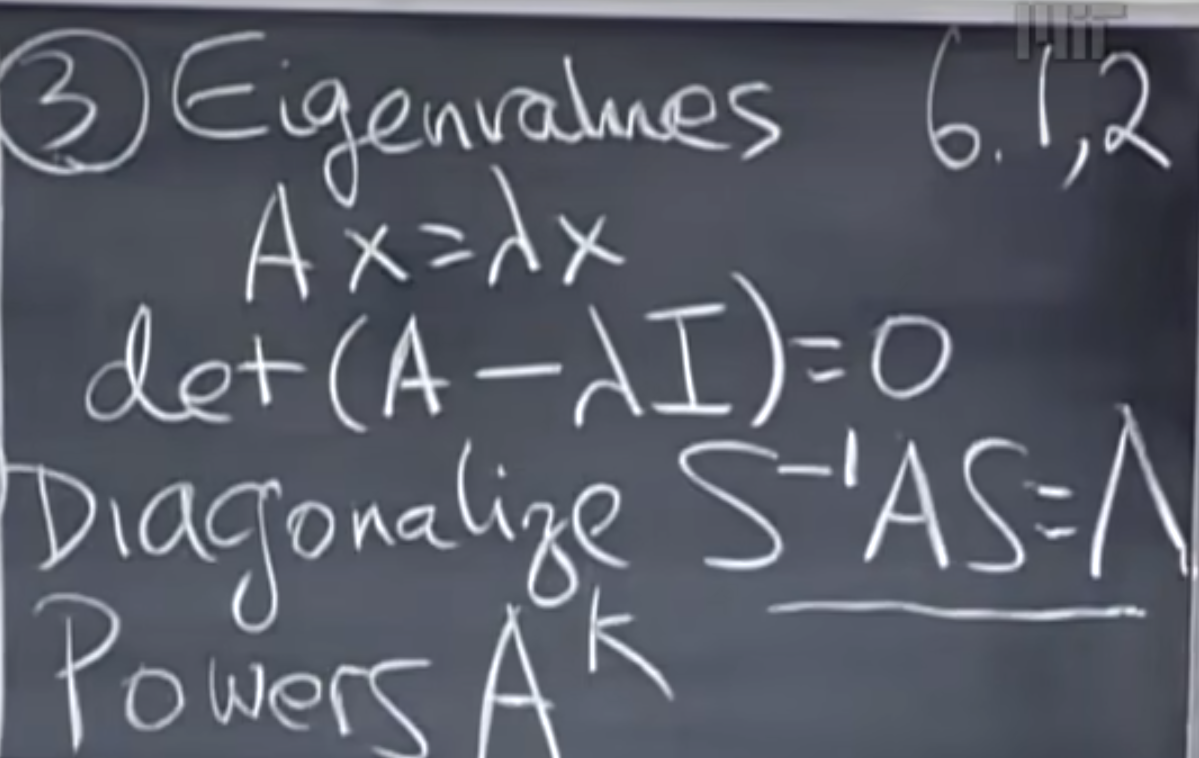 ③ Eigenvalues 6.1,2
MIT
Ax=λx
det(A-λI)=0
Diagonalize S⁻¹AS=Λ
Powers Aᵏ